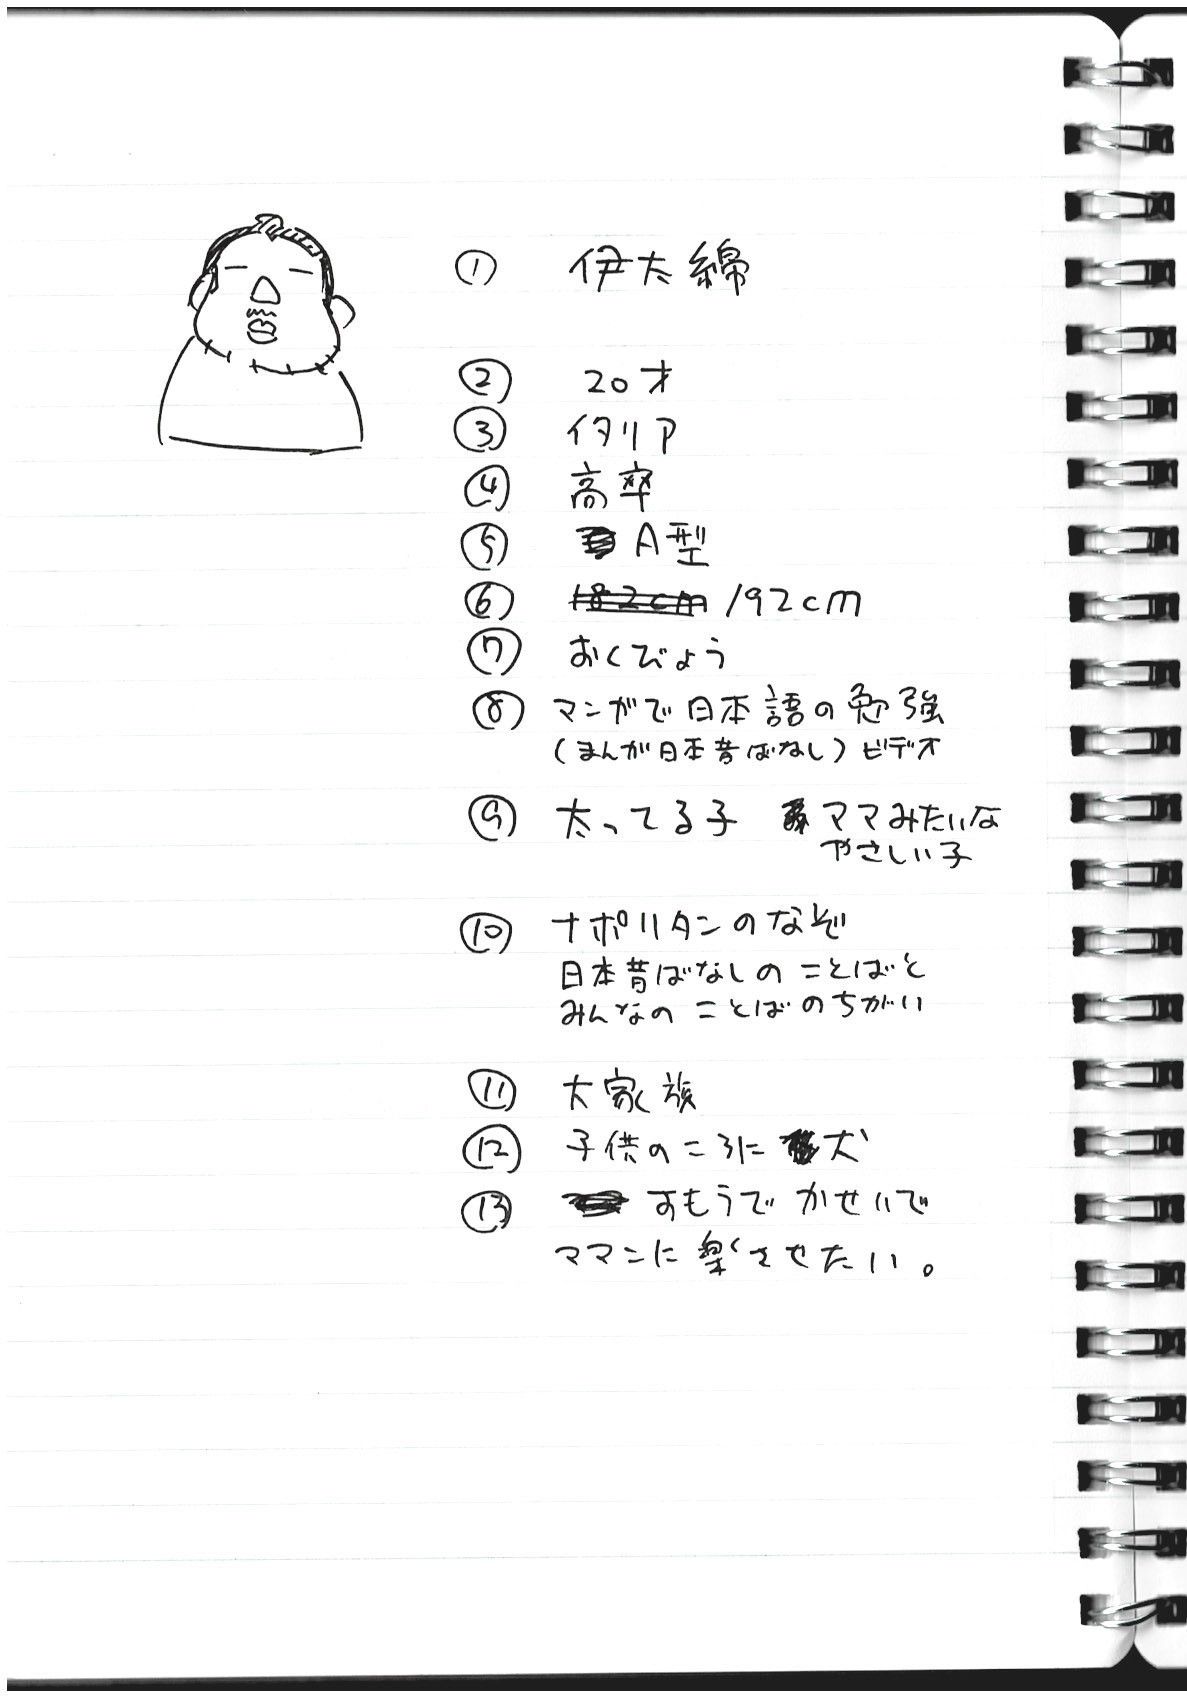 ① 伊太綿
② 20才
③ イタリア
④ 高卒
⑤ A型
⑥ 182cm 192cm
⑦ おくびょう
⑧ マンガで日本語の勉強
(まんが日本昔ばなし)ビデオ
⑨ 太ってる子 ママみたいな
やさしい子
⑩ ナポリタンのなぞ
日本昔ばなしのことばと
みんなのことばのちがい
⑪ 大家族
⑫ 子供のころに 犬
⑬ すもうでかせいで
ママンに楽させたい。